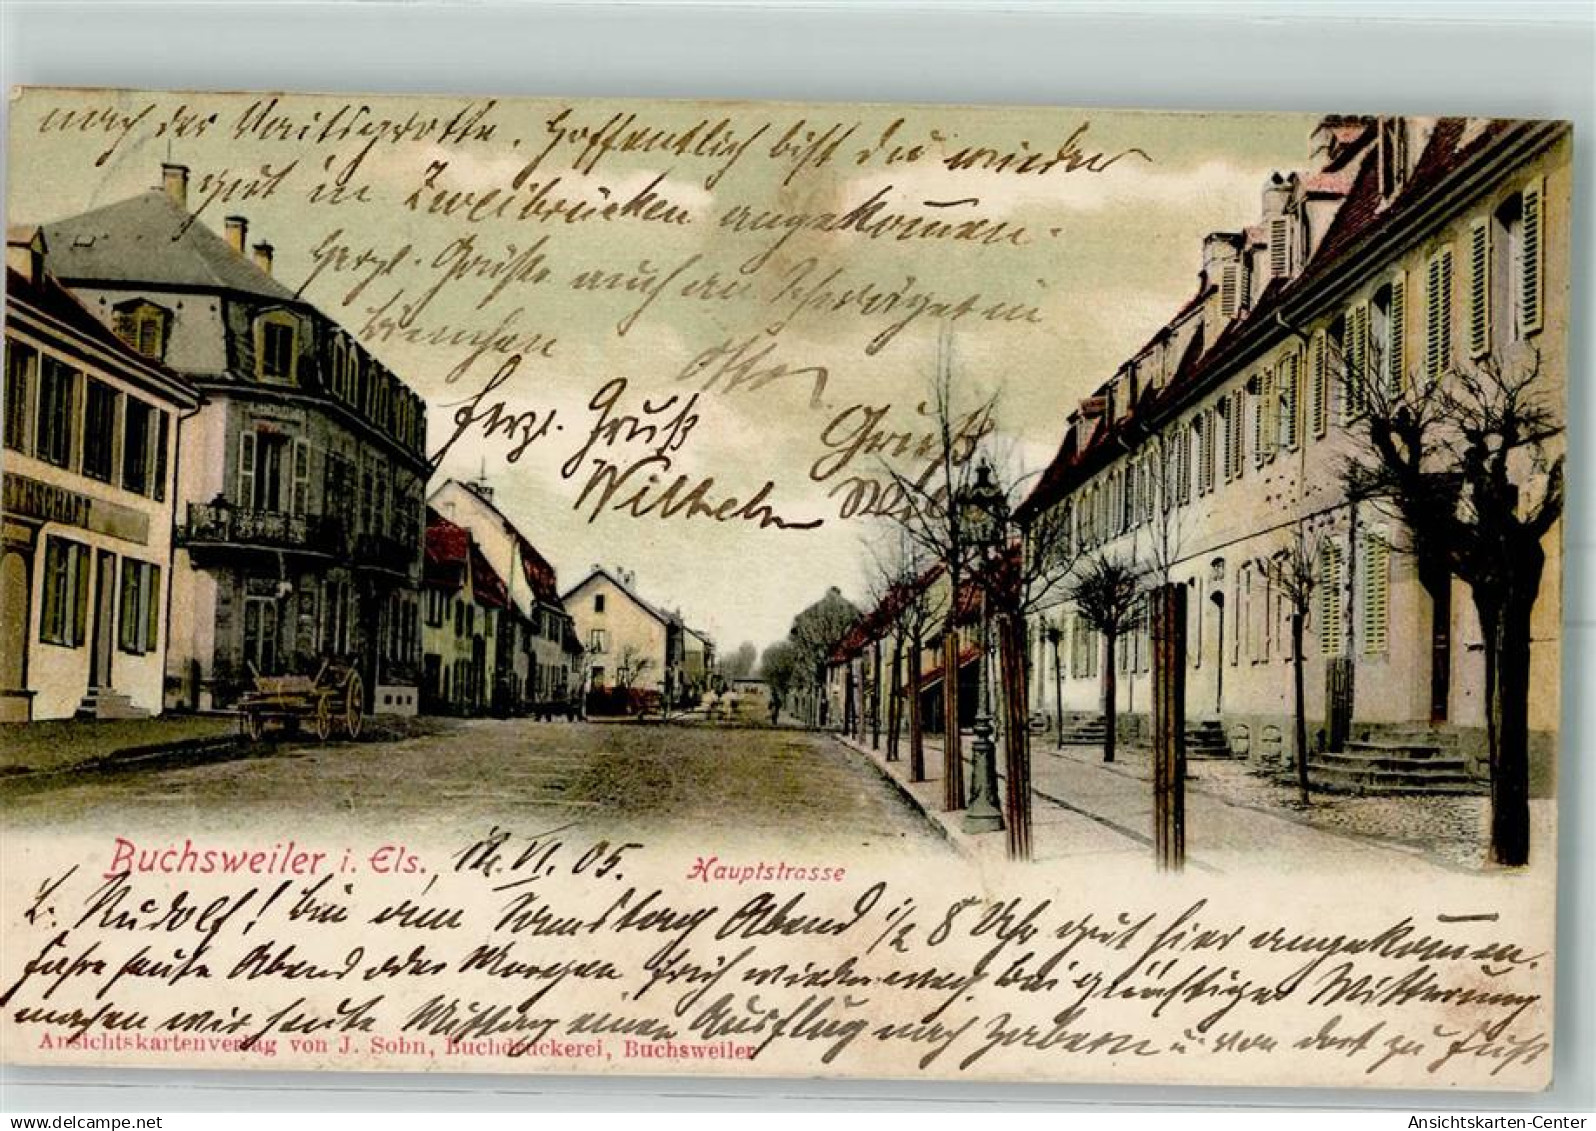 nach der Veitsgrotte. Hoffentlich bist du wieder
gut in Zweibrücken angekommen.
Herzl. Grüße auch an
Herzl. Gruß
Wilhelm
Gruß
WIRTHSCHAFT
Buchsweiler i. Els., 12. VI. 05.
Hauptstrasse
L. Rudolf! Bin am Samstag Abend 1/2 8 Uhr gut hier angekommen.
Fahre heute Abend oder Morgen früh wieder weg. Bei günstiger Witterung
machen wir heute Mittag einen Ausflug nach Zabern u. von dort zu Fuß
Ansichtskartenverlag von J. Sohn, Buchdruckerei, Buchsweiler
AnsichtsKarten-Center